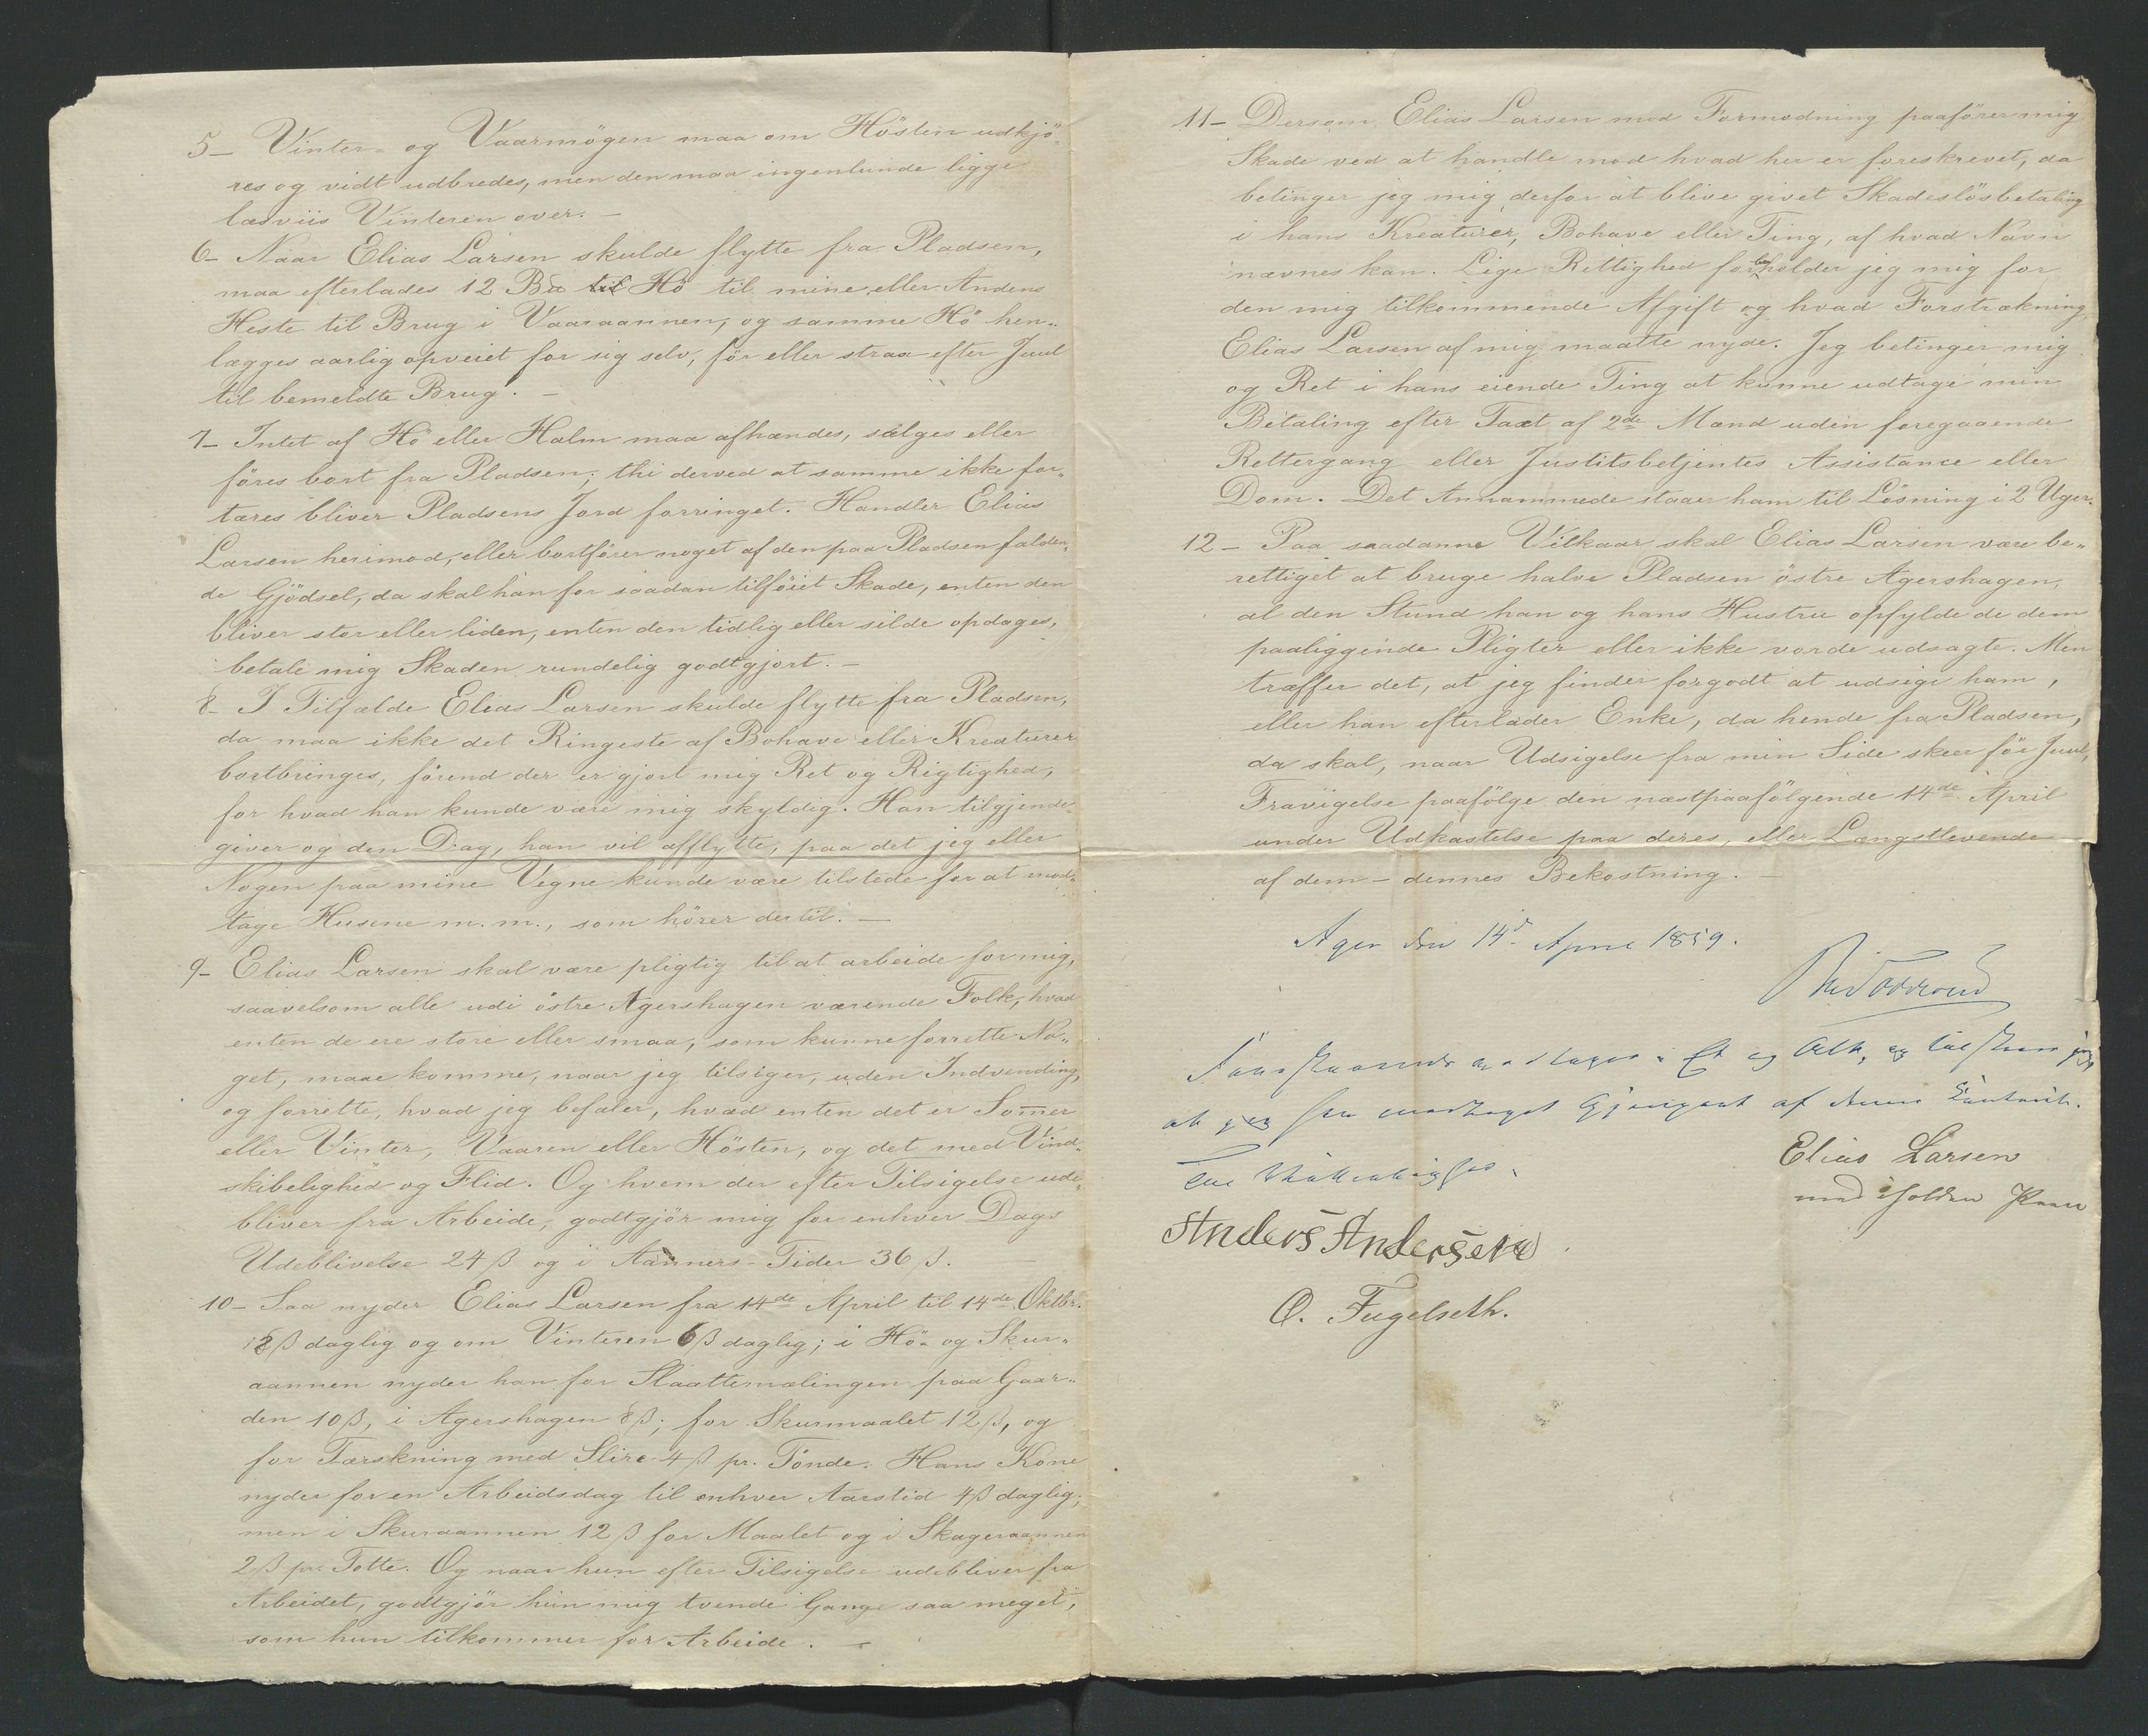 5- Vinter- og Vaarmøgen maa om Hösten udkjö-
res og vidt udbredes, men den maa ingenlunde ligge
læsviis Vinteren over. -
6- Naar Elias Larsen skulde flytte fra Pladsen,
maa efterlades 12 B# til Hö til mine eller Andens
Heste til Brug i Vaaraannen, og samme Hö hen-
lægges aarlig opveiet for sig selv, för eller strax efter Juul
til bemeldte Brug. -
7- Intet af Hö eller Halm maa afhændes, sælges eller
föres bort fra Pladsen; thi derved at samme ikke for-
tæres bliver Pladsens Jord forringet. Handler Elias
Larsen herimod, eller bortförer noget af den paa Pladsen falden-
de Gjödsel, da skal han for saadan tilföiet Skade, enten den
bliver stor eller liden, enten den tidlig eller silde opdages,
betale mig Skaden rundelig godtgjort. -
8- I Tilfælde Elias Larsen skulde flytte fra Pladsen,
da maa ikke det Ringeste af Bohave eller Kreaturer
bortbringes, förend der er gjort mig Ret og Rigtighed,
for hvad han kunde være mig skyldig. Han tilgjende-
giver og den Dag, han vil afflytte, paa det jeg eller
Nogen paa mine Vegne kunde være tilstede for at mod-
tage Husene m. m., som hörer dertil. -
9- Elias Larsen skal være pligtig til at arbeide for mig,
saavelsom alle udi östre Agershagen værende Folk, hvad
enten de ere store eller smaa, som kunne forrette No-
get, maae komme, naar jeg tilsiger, uden Indvending,
og forrette, hvad jeg befaler, hvad enten det er Som̅er
eller Vinter, Vaaren eller Hösten, og det med Vind-
skibelighed og Flid. Og hvem der efter Tilsigelse ude-
bliver fra Arbeide, godtgjör mig for enhver Dags
Udeblivelse 24 ß og i Aanners-Tider 36 ß. -
10- Saa nyder Elias Larsen fra 14de April til 14de Oktbr.
8 ß daglig og om Vinteren 6 ß daglig; i Hö- og Skur-
aannen nyder han for Slaattemælingen paa Gaar-
den 10 ß, i Agershagen 8 ß; for Skurmaalet 12 ß, og
for Tærskning med Slire 4 ß pr. Tönde. Hans Kone
nyder for en Arbeidsdag til enhver Aarstid 4 ß daglig;
men i Skuraannen 12 ß for Maalet og i Skageraannen
2 ß pr. Totte. Og naar hun efter Tilsigelse udebliver fra
Arbeidet, godtgjör hun mig tvende Gange saa meget,
som hun tilkommer for Arbeide. -
11- Dersom Elias Larsen mod Formodning paaförer mig
Skade ved at handle mod hvad her er foreskrevet, da
betinger jeg mig derfor at blive givet Skadeslösbetaling
i hans Kreaturer, Bohave eller Ting, af hvad Navn
nævnes kan. Lige Rettighed forbeholder jeg mig for
den mig tilkommende Afgift og hvad Forstrækning,
Elias Larsen af mig maatte nyde. Jeg betinger mig
og Ret i hans eiende Ting at kunne udtage min
Betaling efter Taxt af 2de Mænd uden foregaaende
Rettergang eller Justitsbetjentes Assistance eller
Dom. Det Annammede staaer ham til Lösning i 2 Uger.
12- Paa saadanne Vilkaar skal Elias Larsen være be-
rettiget at bruge halve Pladsen östre Agershagen,
al den Stund han og hans Hustru opfylde de dem
paaliggende Pligter eller ikke vorde udsagte. Men
træffer det, at jeg finder forgodt at udsige ham,
eller han efterlader Enke, da hende fra Pladsen,
da skal, naar Udsigelse fra min Side skeer för Juul,
Fravigelse paafölge den næstpaafölgende 14de April
under Udkastelse paa deres, eller Længstlevende
af dem - dennes Bekostning. -
Ager den 14d April 1859.
Foranstaaende modtages i Et og Alt, og tilstaaer jeg
at jeg har modtaget Gjenpart af denne Contrakt.
Til Vitterlighed
Elias Larsen
med iholden Pen
Anders Andersen
O. Fugelseth.